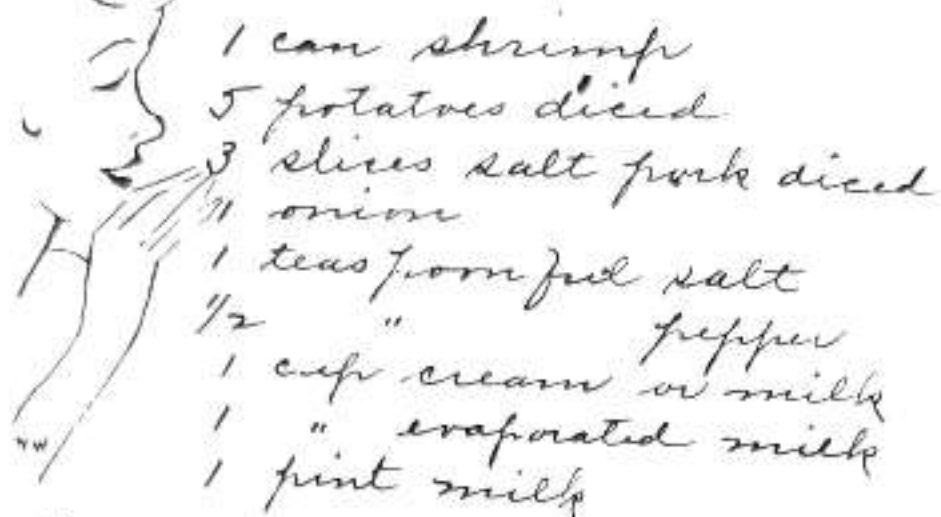 1 can shrimp
5 potatoes diced
3 slices salt pork diced
1 onion
1 teaspoonful salt
1/2 " pepper
1 cup cream or milk
1 " evaporated milk
1 pint milk
WW